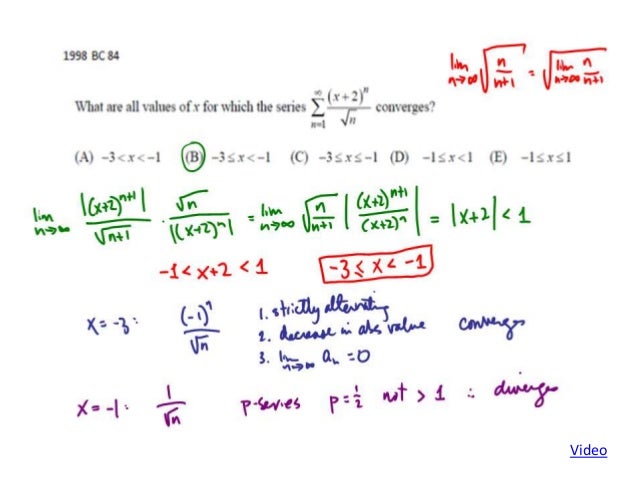 1998 BC 84
lim n→∞ √(n/(n+1)) = √(lim n→∞ n/(n+1))
What are all values of x for which the series ∑ n=1 ∞ (x+2)ⁿ/√n converges?
(A) −3<x<−1 (B) −3≤x<−1 (C) −3≤x≤−1 (D) −1≤x<1 (E) −1≤x≤1
lim n→∞ |(x+2)ⁿ⁺¹|/√(n+1) · √n/|(x+2)ⁿ| = lim n→∞ √(n/(n+1)) |(x+2)ⁿ⁺¹/(x+2)ⁿ| = |x+2| < 1
-1 < x+2 < 1 -3 ≤ x < -1
x = -3: (-1)ⁿ/√n 1. strictly alternating
2. decrease in abs value converges
3. lim n→∞ aₙ = 0
x = -1: 1/√n p-series p = 1/2 not > 1 ∴ diverges
Video